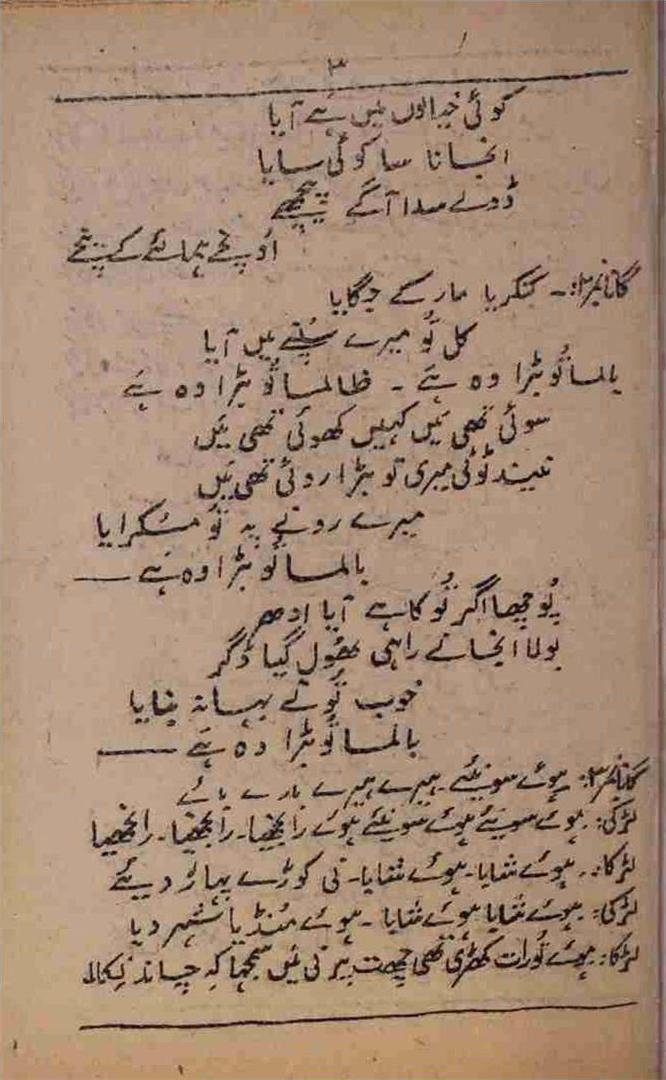 ۳
کوئی خیالوں میں ہے آیا
انجانا سا کوئی سایا
ڈولے سدا آگے پیچھے
اونچے ہمالئے کے نیچے
گانا نمبر ۲: ۔ کنکریا مار کے جگایا
کل تُو میرے سپنے میں آیا
بالما تُو بڑا وہ ہے ۔ ظالما تُو بڑا وہ ہے
سوئی تھی مَیں کہیں کھوئی تھی مَیں
نیند ٹوٹی میری تو بڑا روئی تھی مَیں
میرے رونے پہ تُو مسُکرایا
بالما تُو بڑا وہ ہے ——
پُوچھا اگر تُو کاہے آیا ادھر
بولا انجانے راہی بھُول گیا ڈگر
خوب تُو نے بہانہ بنایا
بالما تُو بڑا وہ ہے ——
گانا نمبر ۳: ہوئے سونیئے ۔ ہیرے ہیرے ہیرے
لڑکی: ۔ ہوئے سونیئے ہوئے سونیئے ہوئے رانجھیا ۔ رانجھیا ۔ رانجھیا
لڑکا: ۔ ہوئے شایا ۔ ہوئے شایا ۔ نی کوڑئے پہاڑ دیئے
لڑکی: ۔ ہوئے شایا ہوئے شایا ۔ ہوئے مُنڈیا شہر دیا
لڑکا: ہوئے تُو رات کھڑی تھی چھت پر نی مَیں سمجھا کہ چاند نِکلا